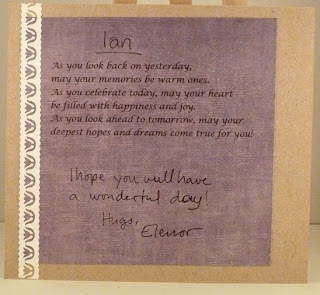 Ian
As you look back on yesterday,
may your memories be warm ones.
As you celebrate today, may your heart
be filled with happiness and joy.
As you look ahead to tomorrow, may your
deepest hopes and dreams come true for you!
I hope you will have
a wonderful day!
Hugs,
Elenor